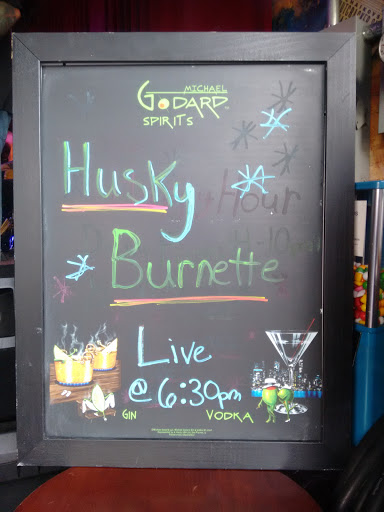 MICHAEL
GODARD
SPIRITS
Husky
Hour
Burnette
Live
@ 6:30pm
GIN VODKA